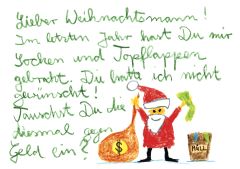 Lieber Weihnachtsmann!
Im letzten Jahr hast Du mir
Socken und Topflappen
gebracht. Du hatte ich nicht
gewünscht!
Tauschst Du die
diesmal gegen
Geld ein?
$